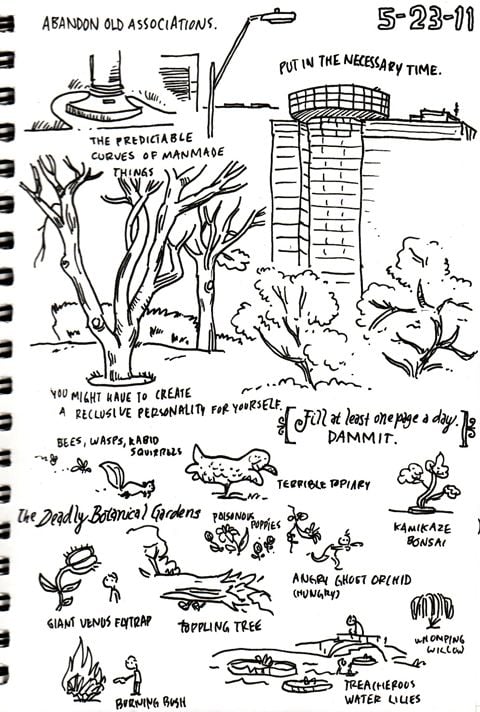 ABANDON OLD ASSOCIATIONS.
5-23-11
PUT IN THE NECESSARY TIME.
THE PREDICTABLE
CURVES OF MANMADE
THINGS
YOU MIGHT HAVE TO CREATE
A RECLUSIVE PERSONALITY FOR YOURSELF.
[Fill at least one page a day.
DAMMIT.]
BEES, WASPS, RABID
SQUIRRELS
TERRIBLE TOPIARY
The Deadly Botanical Gardens
POISONOUS
PUPPIES
KAMIKAZE
BONSAI
ANGRY GHOST ORCHID
(HUNGRY)
GIANT VENUS FLYTRAP
TOPPLING TREE
WHOMPING
WILLOW
BURNING BUSH
TREACHEROUS
WATER LILIES